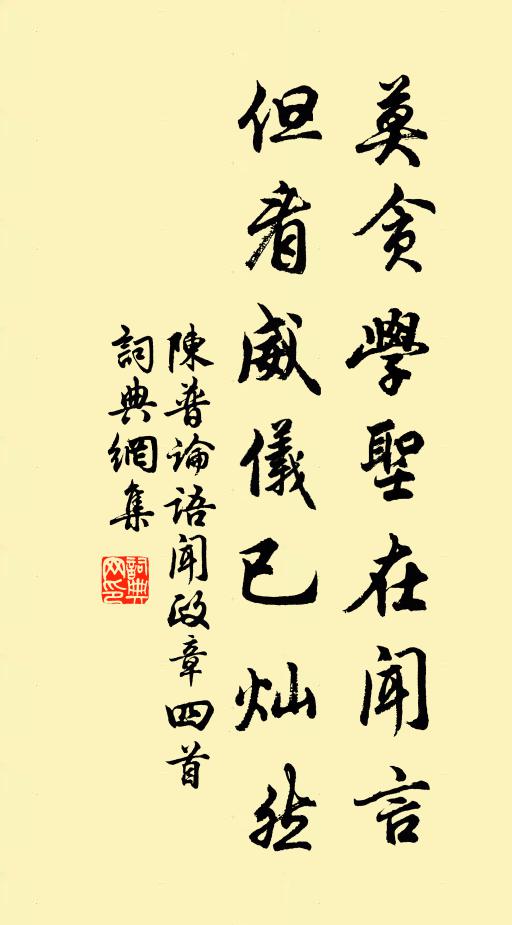 莫贪學聖在闻言
但看威儀已灿然
陳普論語闻政章四首
詞典網集
詞典
网印